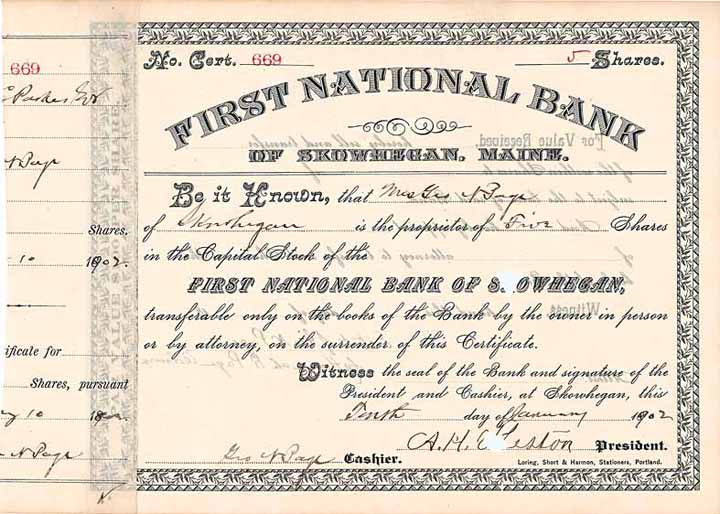 669
Shares.
10 1902
ificate for
Shares, pursuant
10 18
N Page
No. Cert. 669 5 Shares.
FIRST NATIONAL BANK
OF SKOWHEGAN, MAINE.
Be it Known, that Mrs Geo N Page
of Skowhegan is the proprietor of Five Shares
in the Capital Stock of the
FIRST NATIONAL BANK OF S OWHEGAN,
transferable only on the books of the Bank by the owner in person
or by attorney, on the surrender of this Certificate.
Witness the seal of the Bank and signature of the
President and Cashier, at Skowhegan, this
Tenth day of January 1902
A.H. Weston President.
Geo N Page Cashier.
Loring, Short & Harmon, Stationers, Portland.